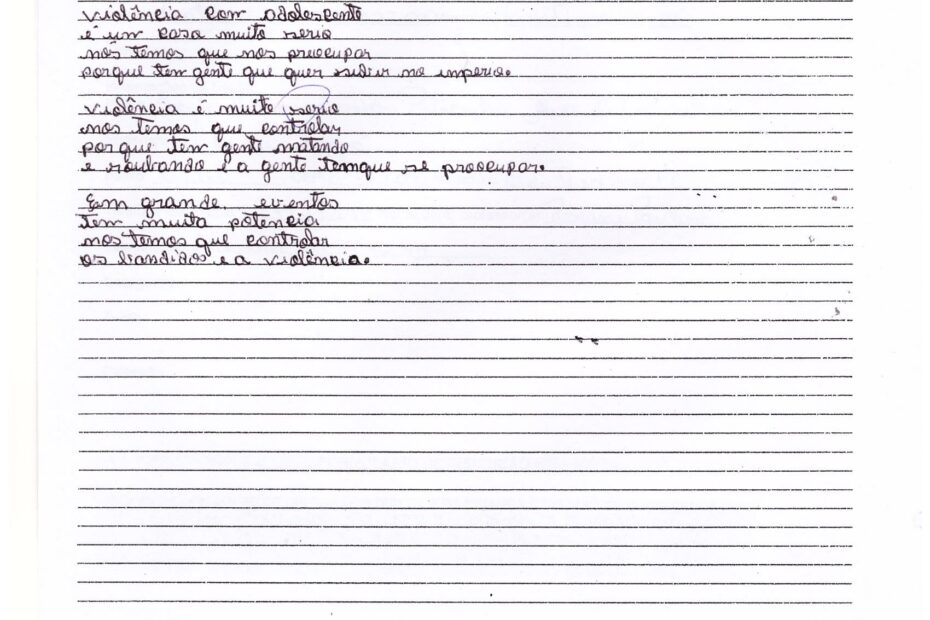 violência com adolescente
é um casa muito serio
nos temos que nos preocupar
porque tem gente que quer subir no imperio.
violência é muito serio
nos temos que controlar
por que tem gente matando
e roubando e a gente temque se proocupar.
Em grande eventos
tem muita potencia
nos temos que controlar
os bandidos e a violência.